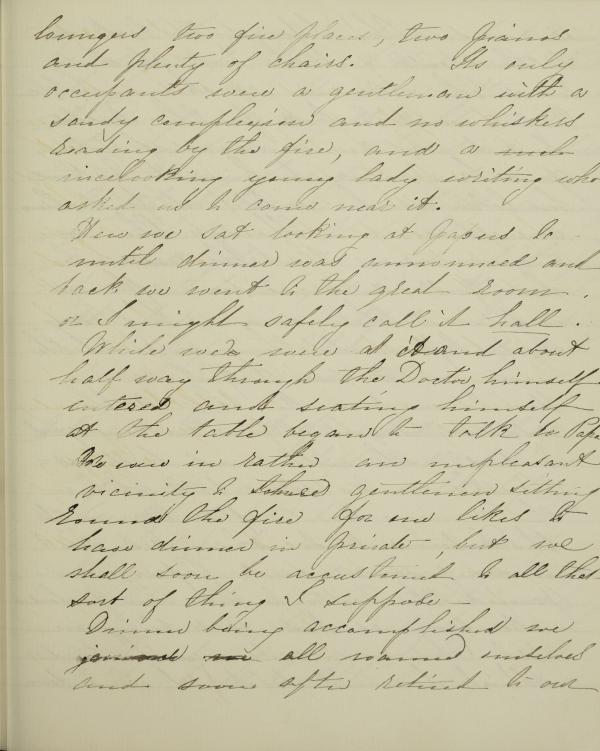 loungers two fire places, two pianos
and plenty of chairs. Its only
occupants were a gentleman with a
sandy complexion and no whiskers
reading by the fire, and a
nicelooking young lady writing who
asked us to come near it.
Here we sat looking at papers &c
until dinner was announced and
back we went to the great room.
or I might safely call it hall.
While we were at it and about
half way through the Doctor himself
entered and seating himself
at the table began to talk to Papa
We were in rather an unpleasant
vicinity to gentlemen sitting
round the fire for one likes to
have dinner in private, but we
shall soon be accustomed to all that
sort of thing I suppose —
Dinner being accomplished we
all warmed ourselves
and soon after retired to our